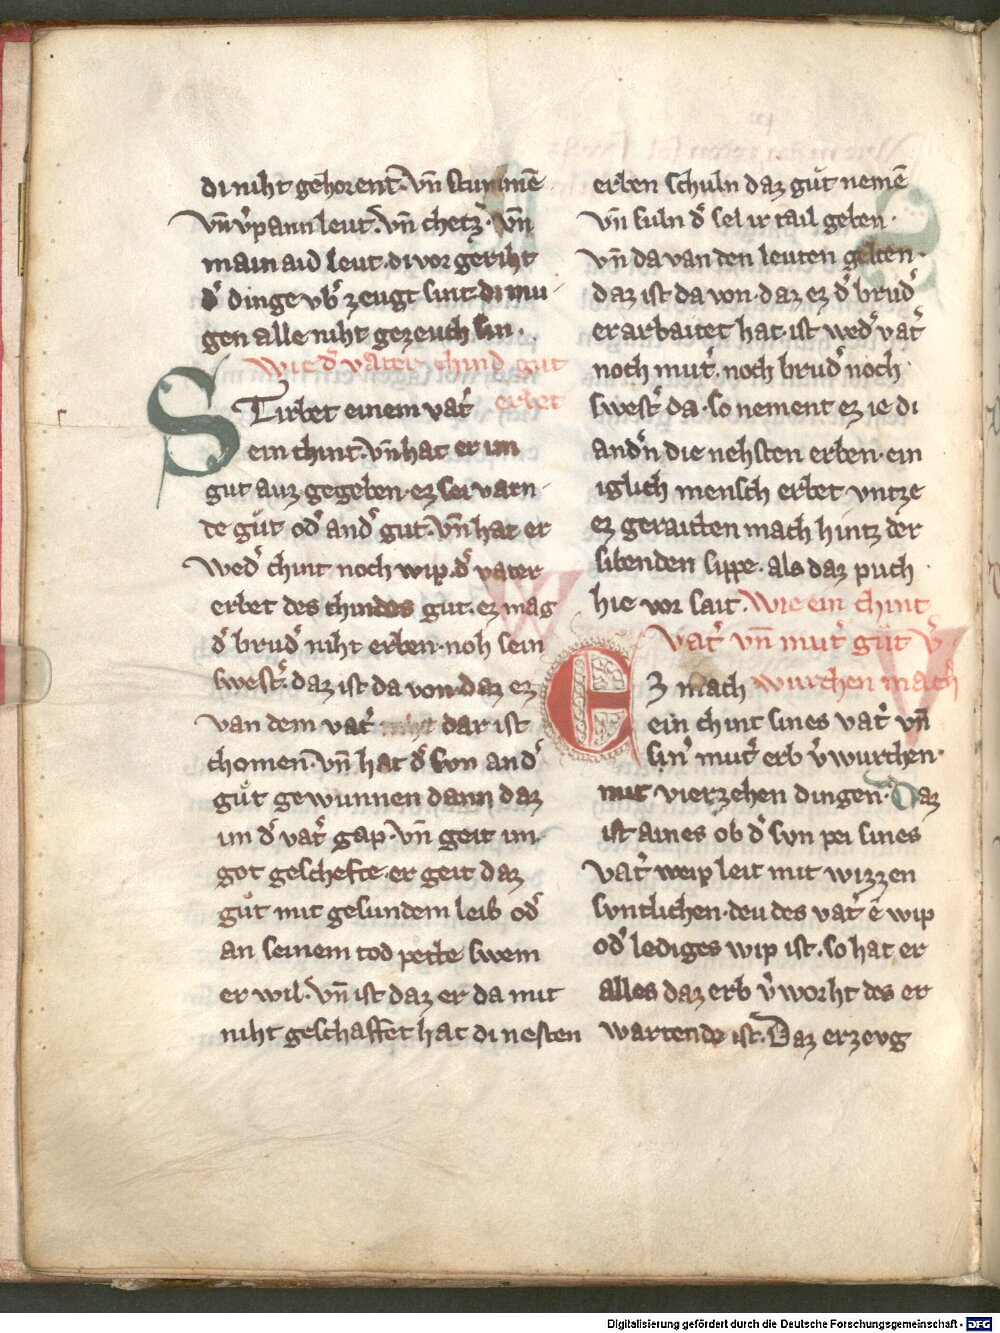 di niht gehorent. vn̄ stummē
vn̄ v̓pann leut. vn̄ chetz̓. vn̄
main aid leut. di vor geriht
d̓ dinge vb̓ zeugt sint. di mu
gen alle niht gezeuch sin.
wie d̓ vater chind gut
erbet
Stirbet einem vat̓
ein chint. vn̄ hat er im
gut auz gegeben. ez sei varn
te gůt od̓ and̓ gut. vn̄ hat er
wed̓ chint noch wip. d̓ vater
erbet des chindes gut. ez mag
d̓ brud̓ niht erben. noh sein
swest̓. daz ist da von. daz ez
van dem vat̓ dar ist
chomen. vn̄ hat d̓ svn and̓
gůt gewunnen dann daz
im d̓ vat̓ gap. vn̄ geit im
got geschefte. er geit daz
gůt mit gesundem leib od̓
an seinem tod pette swem
er wil. vn̄ ist daz er da mit
niht geschaffet hat di nesten
erben schuln daz gůt nemē
vn̄ suln d̓ sel ir tail geben.
vn̄ da van den leuten gelten.
daz ist da von. daz ez d̓ brud̓
erarbaitet hat. ist wed̓ vat̓
noch mut̓. noch brud̓ noch
swest̓ da. so nement ez ie di
and̓n die nehsten erben. ein
iglich mensch erbet vntze
ez geraiten mach hintz der
sibenden sippe. als daz puch
hie vor sait. Wie ein chint
vat̓ vn̄ mut̓ gůt v̓
wurchen mach
Ez mach
ein chint sines vat̓ vn̄
sin̓ mut̓ erb v̓wurchen.
mit vierzehen dingen. Daz
ist aines ob d̓ svn pei sines
vat̓ weip leit mit wizzen
svntlichen. deu des vat̓ ê wip
od̓ lediges wip ist. so hat er
alles daz erb v̓worht des er
wartende ist. Daz er zevg
Digitalisierung gefördert durch die Deutsche Forschungsgemeinschaft - DFG